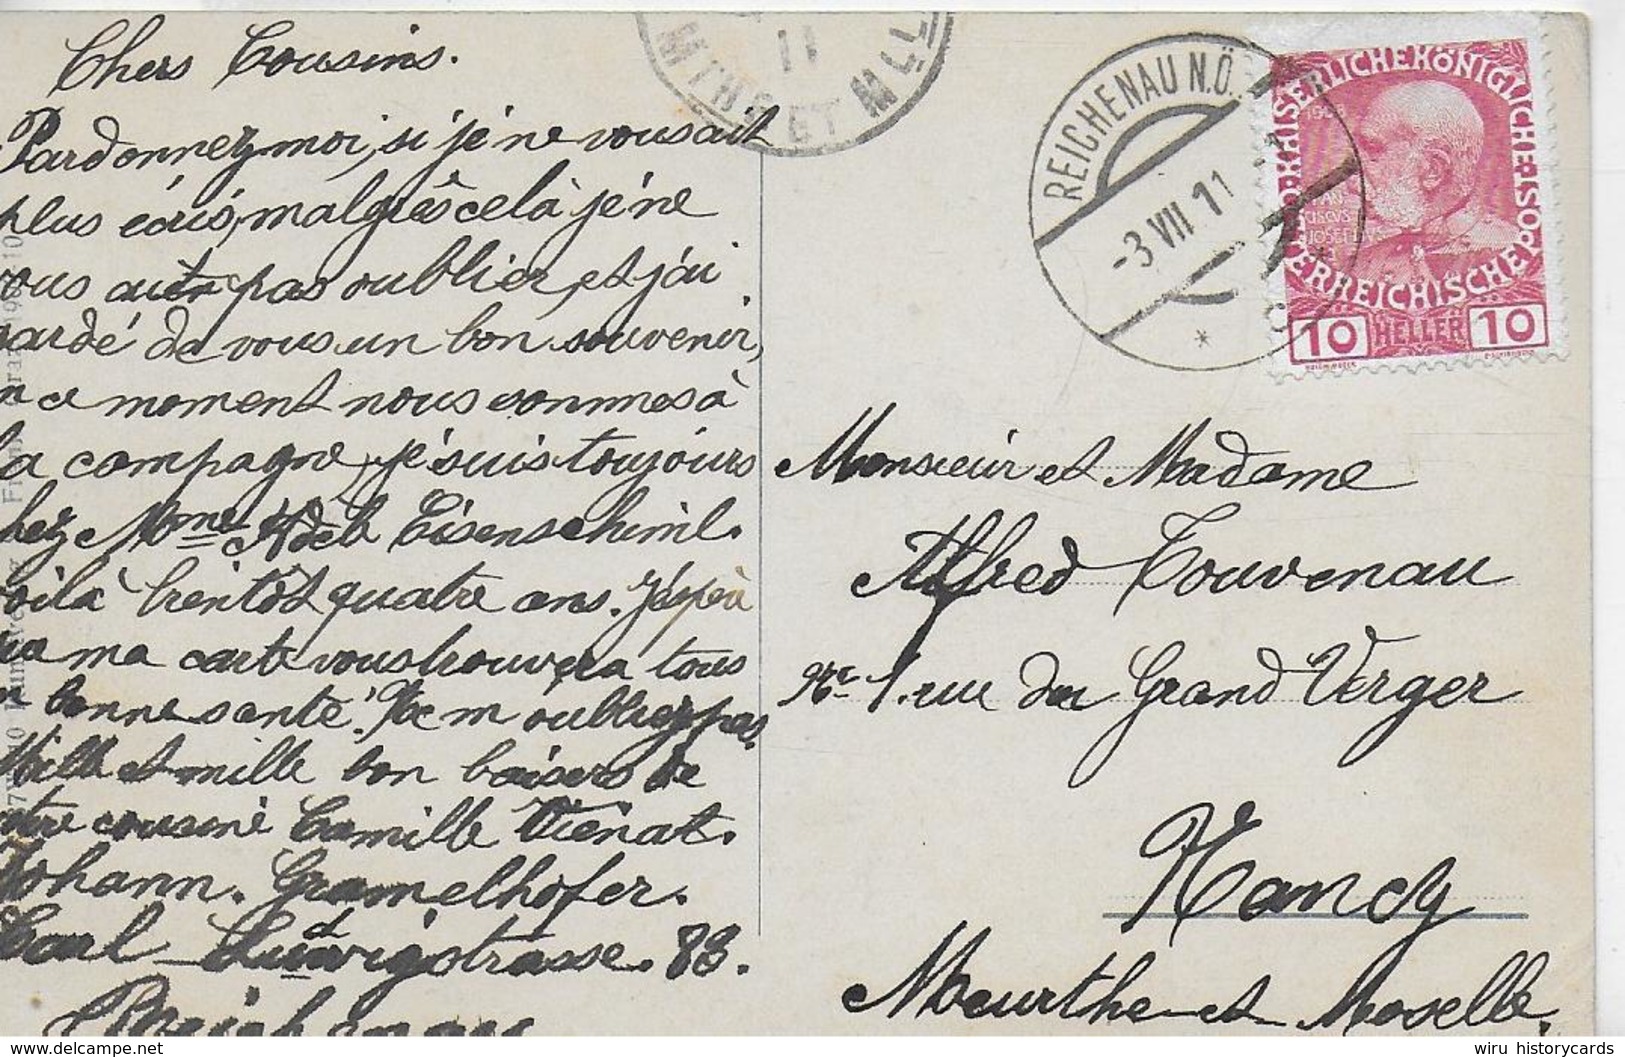 Chers Cousins.
Pardonnez moi, si je ne vous ait
plus écris, malgrês celà je ne
vous pas oublier, et j'ai
gardé de vous un bon souvenir,
n ce moment nous sommes à
la compagne, je suis toujours
hez Mme Adèle Eisenschiml.
oilà bientôt quatre ans. J'éspèr
ma carte vous trouvera tous
n bonne santé! Ne m'oubliez pas.
Mille et mille bon baisers de
otre cousine Camille Viénat.
Johann. Gramelhofer.
Carl Ludwigstrasse. 88.
Reichenau
11
MTHE ET MLLE
REICHENAU N.Ö.
-3 VII 11
c
KAISERLICHE KÖNIGLICHE
ÖSTERREICHISCHE POST
1908
JOSEFUS
10 HELLER 10
Monsieur et Madame
Alfred Touvenau
Nr. 1. rue du Grand Verger
Nancy
Meurthe et Moselle.
wiru historycards